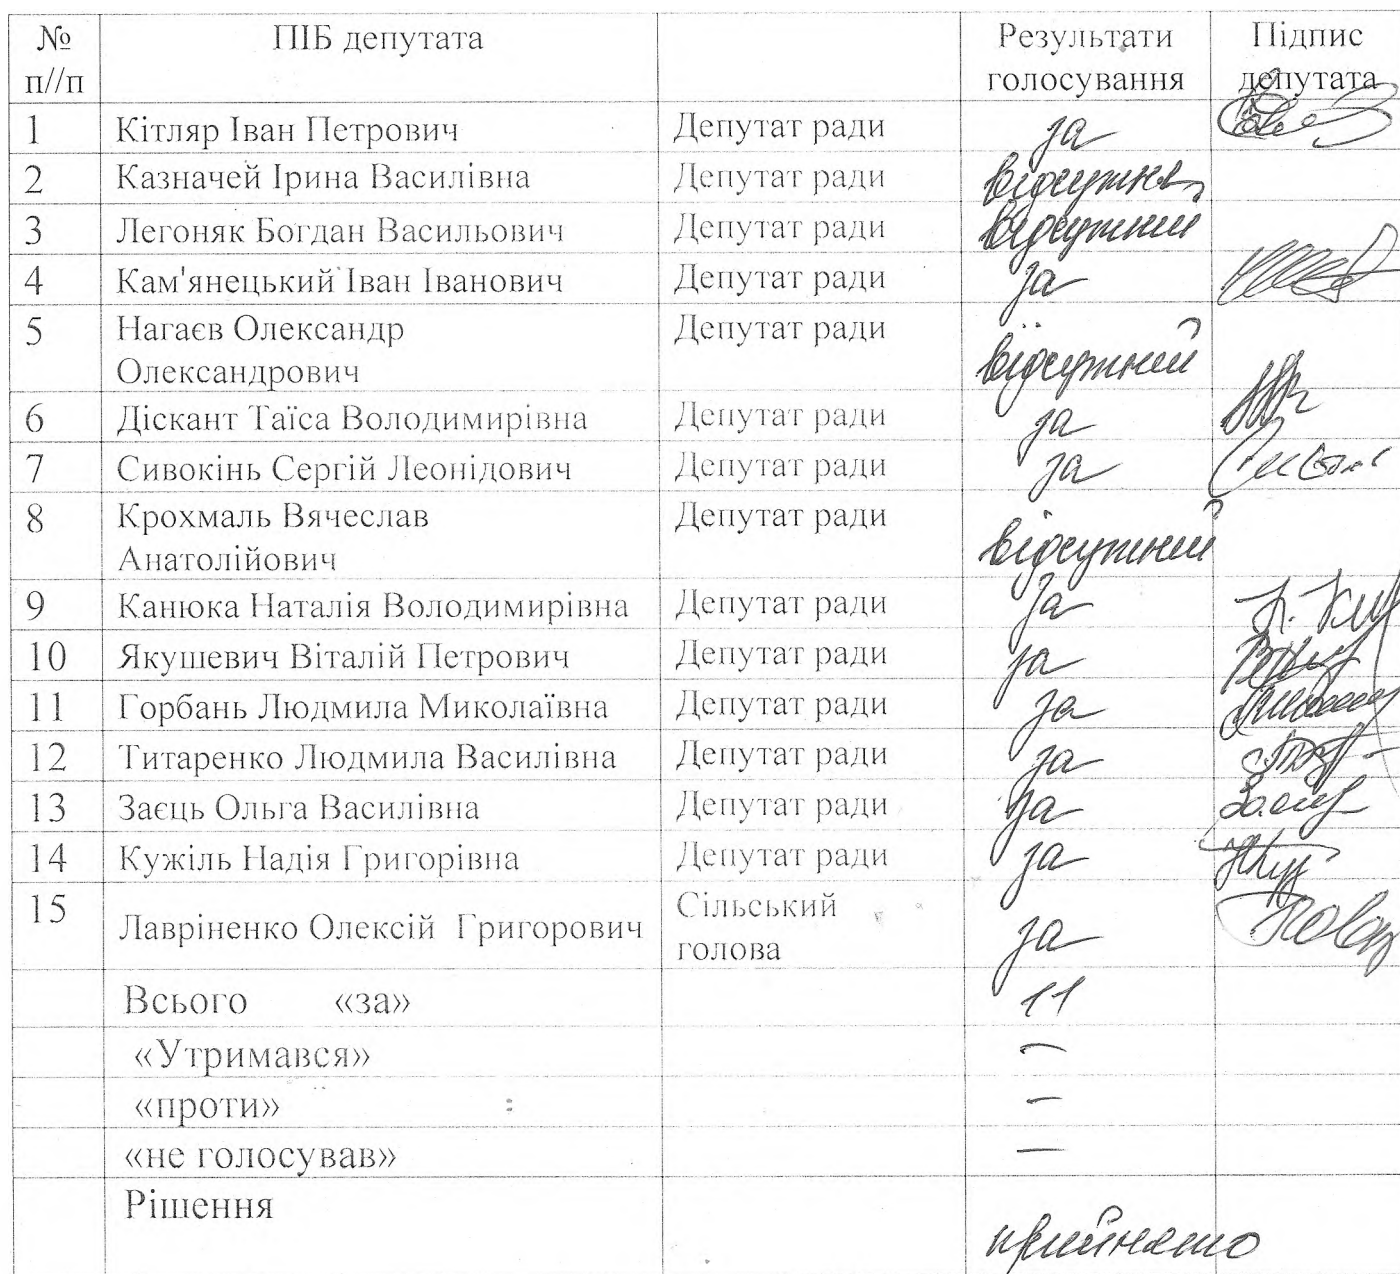 № п//п ПІБ депутата Результати голосування Підпис депутата
1 Кітляр Іван Петрович Депутат ради за
2 Казначей Ірина Василівна Депутат ради відсутня
3 Легоняк Богдан Васильович Депутат ради відсутній
4 Кам'янецький Іван Іванович Депутат ради за
5 Нагаєв Олександр Депутат ради
Олександрович відсутній
6 Діскант Таїса Володимирівна Депутат ради за
7 Сивокінь Сергій Леонідович Депутат ради за
8 Крохмаль Вячеслав Депутат ради
Анатолійович відсутній
9 Канюка Наталія Володимирівна Депутат ради за
10 Якушевич Віталій Петрович Депутат ради за
11 Горбань Людмила Миколаївна Депутат ради за
12 Титаренко Людмила Василівна Депутат ради за
13 Заєць Ольга Василівна Депутат ради за
14 Кужіль Надія Григорівна Депутат ради за
15 Лавріненко Олексій Григорович Сільський голова за
Всього «за» 11
«Утримався» –
«проти» –
«не голосував» –
Рішення прийнято